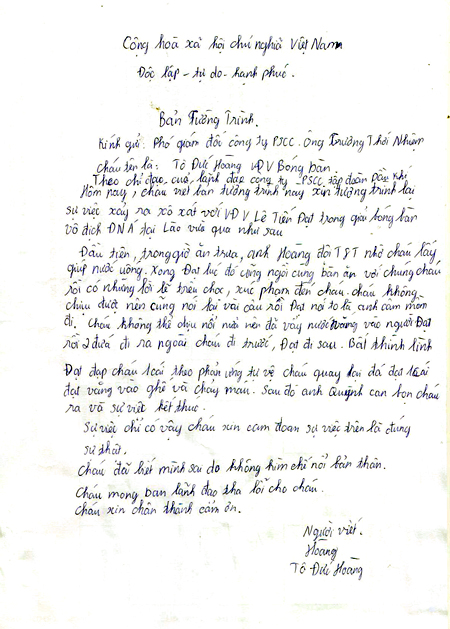 Cộng hoà xã hội chủ nghĩa Việt Nam
Độc lập - tự do - hạnh phúc.
Bản Tường Trình.
Kính gửi: Phó giám đốc công ty PSCC. Ông Trương Thới Nhiệm
Cháu tên là: Tô Đức Hoàng VĐV Bóng bàn.
Theo chỉ đạo của lãnh đạo công ty PSCC tập đoàn Dầu Khí
Hôm nay, cháu viết bản tường trình này xin tường trình lại
sự việc xảy ra xô xát với VĐV Lê Tiến Đạt trong giải bóng bàn
vô địch ĐNA tại Lào vừa qua như sau
Đầu tiên, trong giờ ăn trưa, anh Hoàng đội T&T nhờ cháu lấy
giúp nước uống. xong Đạt lúc đó cũng ngồi cùng bàn ăn với chúng cháu
rồi có những lời lẽ trêu chọc, xúc phạm đến cháu. cháu không
chịu được nên cũng nói lại vài câu rồi Đạt nói to là anh câm mồm
đi. Cháu không thể chịu nổi nữa nên đã vẩy nước vào người Đạt
rồi 2 đứa đi ra ngoài cháu đi trước, Đạt đi sau. Bất thình lình
Đạt đạp cháu 1 cái theo phản ứng tự vệ cháu quay lại đá đạt 1 cái
đạt văng vào ghế và chảy máu. sau đó anh Quỳnh can bọn cháu
ra và sự việc kết thúc.
Sự việc chỉ có vậy cháu xin cam đoan sự việc trên là đúng
sự thật.
Cháu đã biết mình sai do không kìm chế nổi bản thân.
Cháu mong ban lãnh đạo tha lỗi cho cháu.
Cháu xin chân thành cảm ơn.
Người viết.
Hoàng
Tô Đức Hoàng